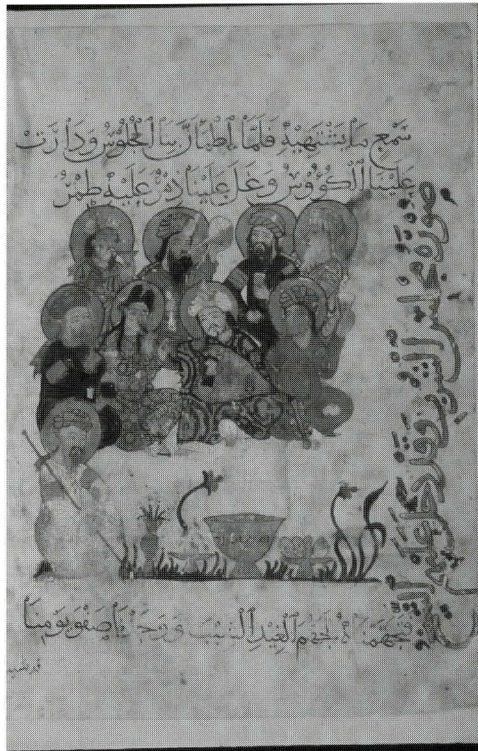 سَمْعٍ مَا يَشْتَهِيهِ فَلَمَّا اطْمَأَنَّ بِنَا الْجُلُوسُ وَدَارَتْ
عَلَيْنَا الْكُؤُوسُ وَغَلَ عَلَيْنَا ذِمْرٌ عَلَيْهِ طِمْرٌ
صورة مجلس الشرب وقد دخل عليهم
فَتَجَهَّمْنَاهُ تَجَهُّمَ الْغِيدِ الشِّيبَ وَوَجَدْنَا صَفْوَ يَوْمِنَا
قد شيب